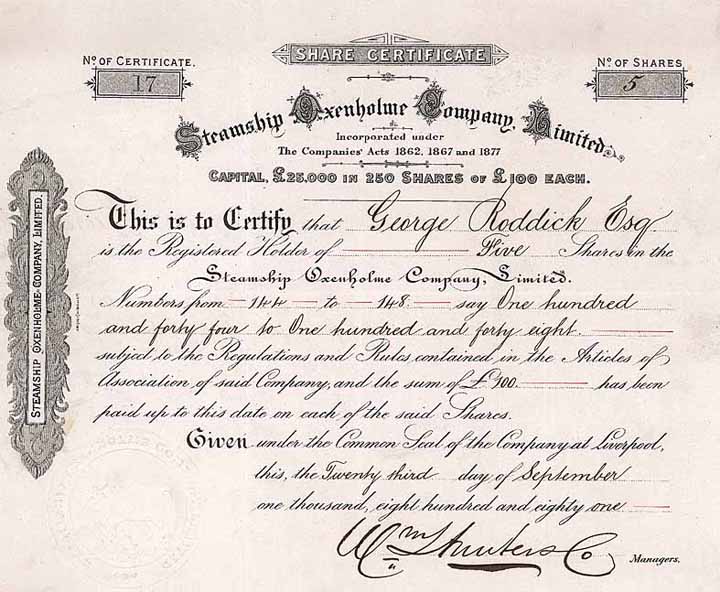 SHARE CERTIFICATE
No. OF CERTIFICATE.
17
No. OF SHARES
5
Steamship Oxenholme Company, Limited.
Incorporated under
The Companies' Acts 1862, 1867 and 1877
CAPITAL, £25,000 IN 250 SHARES OF £100 EACH.
This is to Certify that George Roddick Esq
is the Registered Holder of Five Shares in the
Steamship Oxenholme Company, Limited.
Numbers from 144 to 148 say One hundred
and forty four to One hundred and forty eight
subject to the Regulations and Rules contained in the Articles of
Association of said Company, and the sum of £100 has been
paid up to this date on each of the said Shares.
Given under the Common Seal of the Company at Liverpool,
this, the Twenty third day of September
one thousand, eight hundred and eighty one
Wm Co
Managers.
STEAMSHIP OXENHOLME COMPANY, LIMITED.